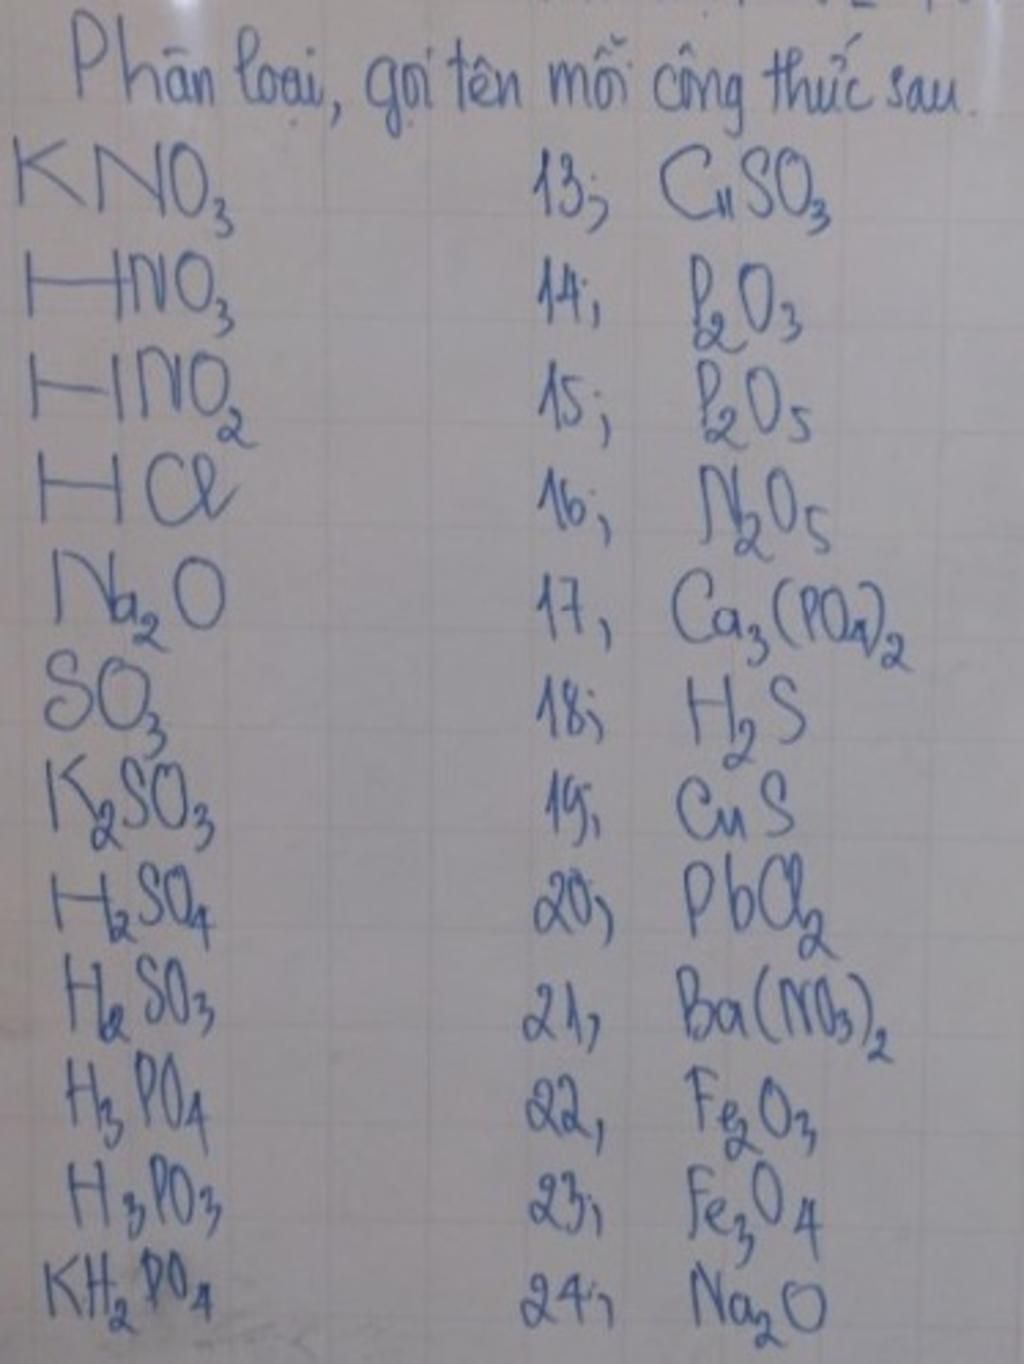 Phân loại, gọi tên mỗi công thức sau.
KNO3
HNO3
HNO2
HCl
Na2O
SO3
K2SO3
H2SO4
H2SO3
H3PO4
H3PO3
KH2PO4
13; CuSO3
14; P2O3
15; P2O5
16; N2O5
17, Ca3(PO4)2
18; H2S
19; CuS
20; PbCl2
21; Ba(NO3)2
22, Fe2O3
23; Fe3O4
24; Na2O